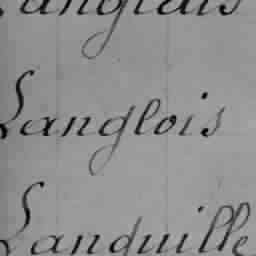 Langlais
Langlois
Languille